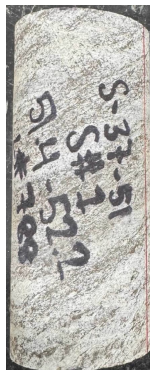 S-37-51
S#1
51.4-52.2
#788